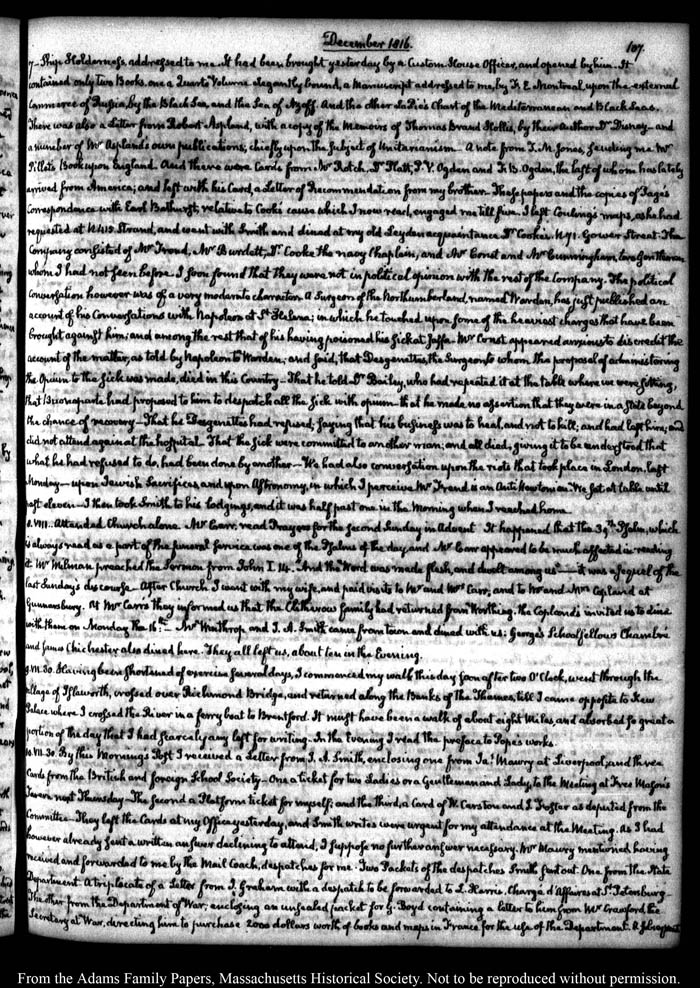 December 1816.
107.
7. Ship Holderness, addressed to me. It had been brought yesterday by a Custom House Officer, and opened by him. It
contained only two Books. one a Quarto Volume elegantly bound, a Manuscript addressed to me, by F. E. Montreal, upon the external
Commerce of Russia, by the Black Sea, and the Sea of Azoff. And the other La Pie's Chart of the Mediterranean and Black Seas.
There was also a Letter from Robert Aspland, with a copy of the Memoirs of Thomas Brand Hollis, by their author Dr Disney— and
a number of Mr Aspland's own publications; chiefly upon the Subject of Unitarianism. A note from T. M. Jones, sending me Mr
Pillet's Book upon England. And there were Cards from Mr Rotch, Dr Platt, P. V. Ogden and F. B. Ogden, the last of whom has lately
arrived from America; and left with his Card, a Letter of Recommendation from my brother. These papers and the copies of
Correspondence with Earl Bathurst, relative to Cook's cause which I now read, engaged me till five. I left maps, as he had
requested at N. Strand, and went with Smith and dined at my old Leyden acquaintance Dr Cooke's. N. 71. Gower Street. The
Company consisted of Mr Frend, Mr Burdett, Dr Cooke the navy Chaplain, and Mr Const and Mr Cunningham, two Gentlemen
whom I had not seen before. I soon found that they were not in political opinion with the rest of the Company. The political
Conversation however was of a very moderate character. A Surgeon of the Northumberland, named Warden, has just published an
account of his Conversations with Napoleon at St Helena; in which he touched upon some of the heaviest charges that have been
brought against him; and among the rest that of his having poisoned his sick at Jaffa. Mr Const appeared anxious to discredit the
account of the matter, as told by Napoleon to Warden; and said, that Desgenettes, the Surgeon to whom the proposal of administering
the Opium to the Sick was made, died in this Country— That he told Dr Bailey, who had repeated it at the table where we were sitting,
that Buonaparte had proposed to him to despatch all the sick with opium— that he made no assertion that they were in a State beyond
the chance of recovery— That he Desgenettes had refused, saying that his business was to heal, and not to kill; and had left him, and
did not attend again at the hospital. That the sick were committed to another man; and all died, giving it to be understood that
what he had refused to do, had been done by another— We had also conversation upon the riots that took place in London, last
Monday— upon Jewish Sacrifices, and upon Astronomy, in which I perceive Mr Frend is an Anti Newtonian. We sat at table until
past eleven— I then took Smith to his lodgings, and it was half past one in the Morning when I reached home.
8. VII.. Attended Church alone. Mr Carr, read Prayers for the second Sunday in Advent. It happened that the 39th Psalm, which
is always read as a part of the funeral service was one of the Psalms of the day and Mr Carr appeared to be much affected in reading
it. Mr Milman preached the Sermon from John I. 14. And the Word was made flesh, and dwelt among us"— it was a sequel of the
last Sunday's discourse. After Church I went with my wife, and paid visits to Mr and Mrs Carr; and to Mr and Mrs Copland at
Gunnersbury. At Mr Carr's they informed us that the Clitherow family had returned from Worthing. The Copland's invited us to dine
with them on Monday the 16th.— Mr Winthrop and J. A. Smith came from town and dined with us; George's Schoolfellows Chambré
and James Chichester also dined here. They all left us, about ten in the Evening.
9. VII. 30. Having been shortened of exercise several days, I commenced my walk this day soon after two O'Clock, went through the
village of Isleworth, crossed over Richmond Bridge, and returned along the Banks of the Thames, till I came opposite to Kew
Palace where I crossed the River in a ferry boat to Brentford. It must have been a walk of about eight Miles, and absorbed so great a
portion of the day that I had scarcely any left for writing. In the Evening I read the preface to Pope's works.
10. VII. 30. By this Morning's Post I received a Letter from J. A. Smith, enclosing one from Jas Maury at Liverpool; and three
Cards from the British and foreign School Society— One a ticket for two Ladies or a Gentleman and Lady, to the Meeting at Free Mason's
Tavern next Thursday— The second a Platform ticket for myself; and the third, a Card of W. Corston and J. Foster as deputed from the
Committee. They left the Cards at my Office yesterday, and Smith writes were urgent for my attendance at the Meeting. As I had
however already sent a written answer declining to attend, I suppose no further answer necessary. Mr Maury mentioned having
received and forwarded to me by the Mail Coach, despatches for me. Two Packets of the despatches Smith sent out. One from the State
Department. A triplicate of a Letter from J. Graham with a despatch to be forwarded to L. Harris, Chargé d'Affaires at St Petersburg—
The other from the Department of War, enclosing an unsealed packet for G. Boyd containing a letter to him from Mr Crawford, the
Secretary at War, directing him to purchase 2000 dollars worth of books and maps in France for the use of the Department.
From the Adams Family Papers, Massachusetts Historical Society. Not to be reproduced without permission.